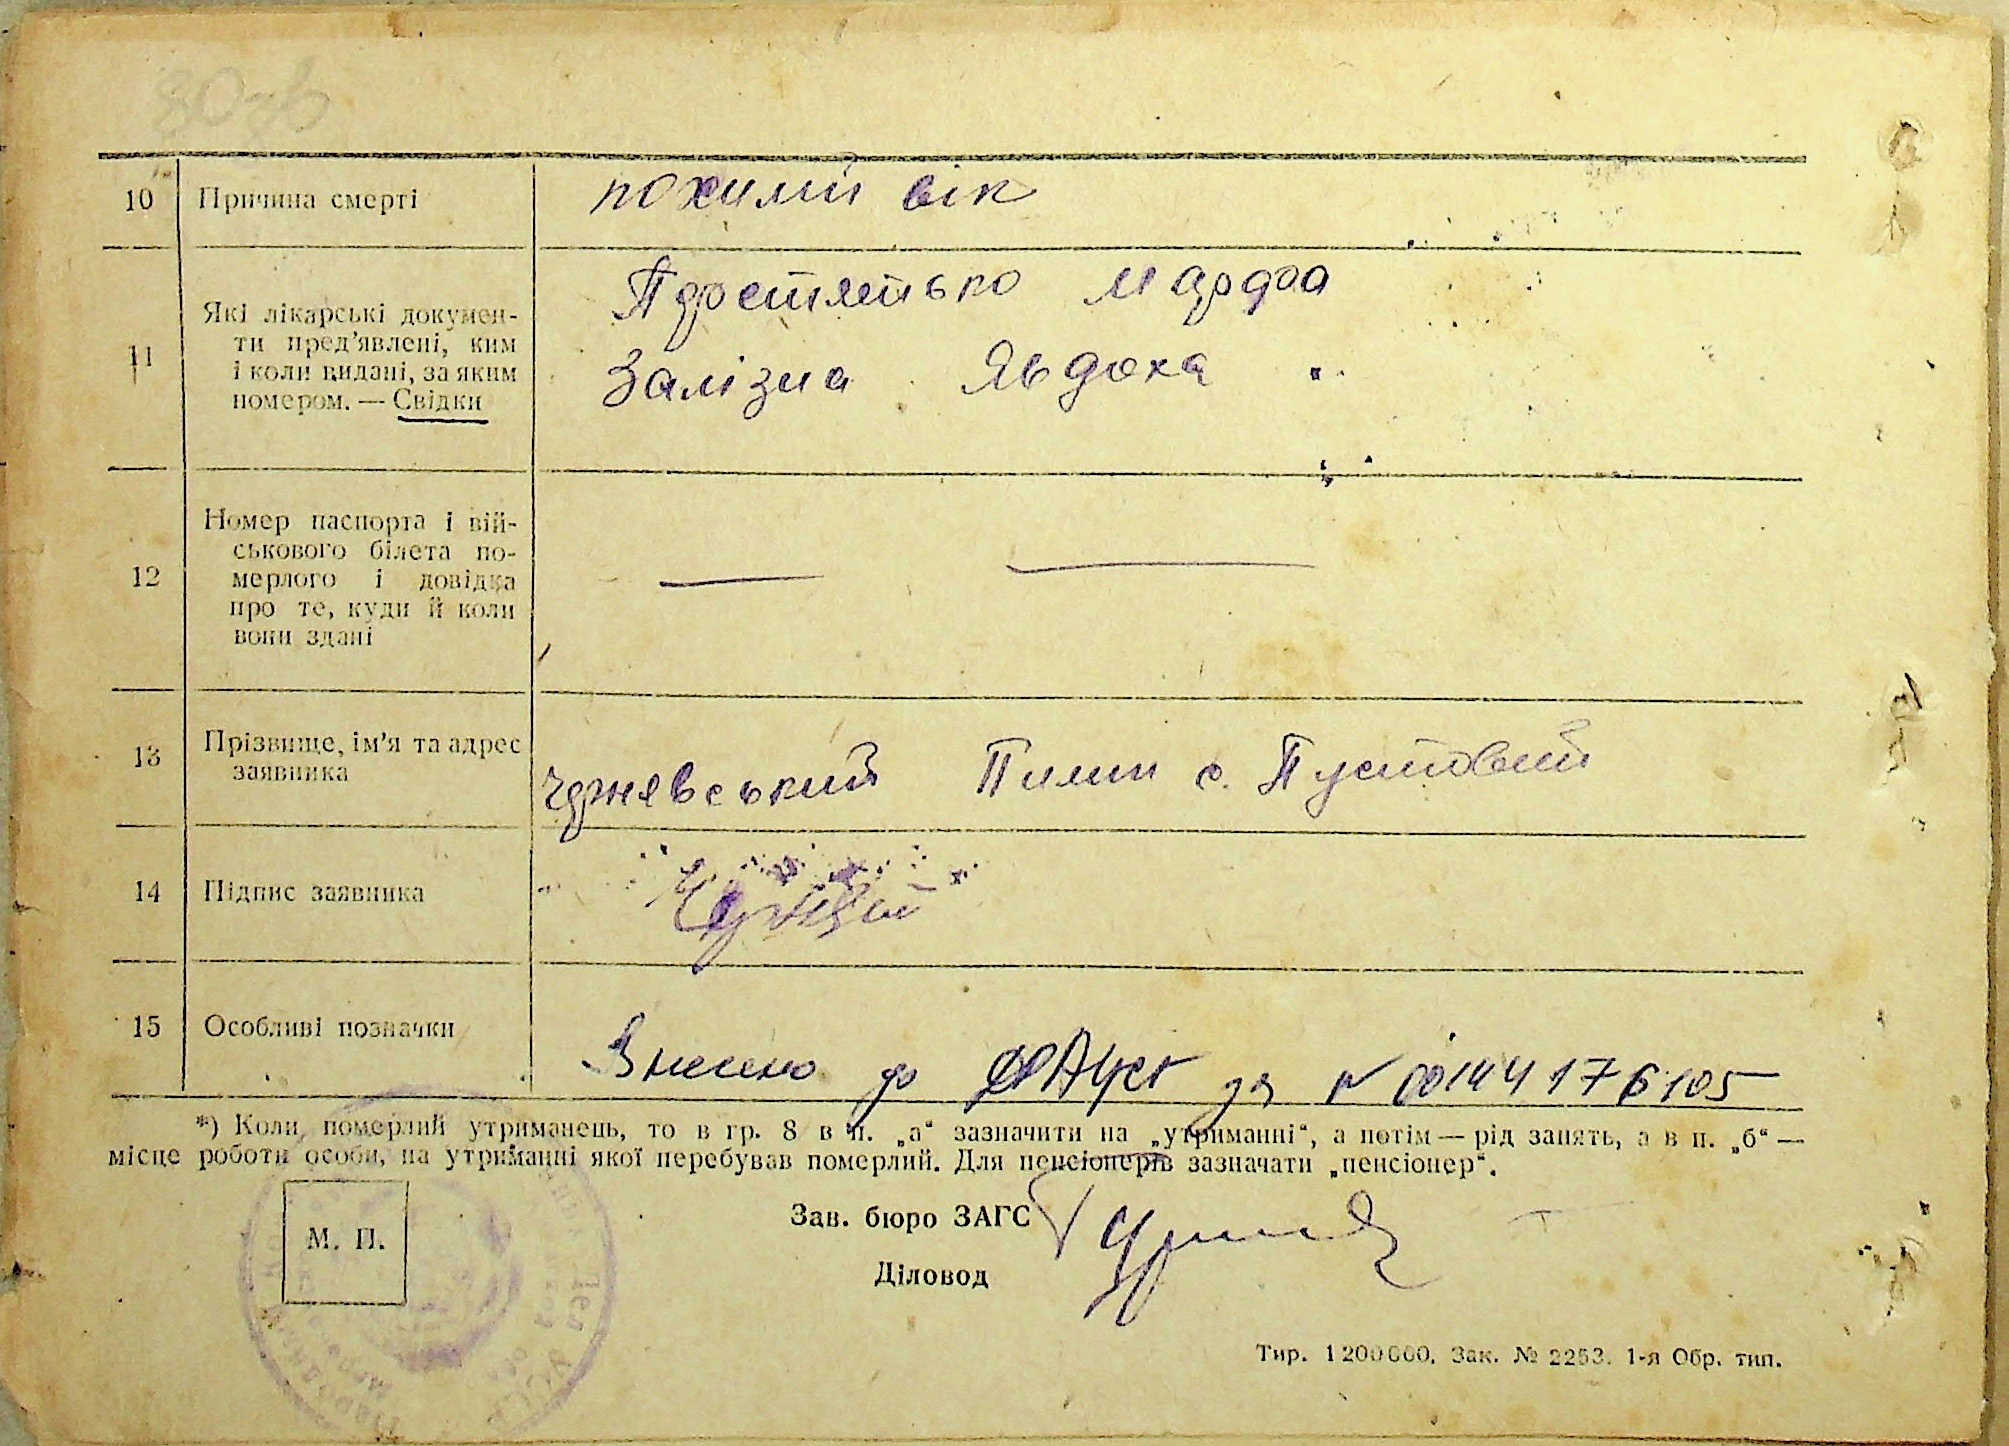 10 Причина смерті похилий вік
11 Які лікарські докумен-
ти пред'явлені, ким
і коли видані, за яким
номером. — Свідки
Мардоа
Залізна Явдоха "
12 Номер паспорта і вій-
ськового білета по-
мерлого і довідка
про те, куди й коли
вони здані
13 Прізвище, ім'я та адрес
заявника
Пилип с. Пустовіт
14 Підпис заявника
15 Особливі позначки
Внесено до ДРАЦСГ за № 00144176105
*) Коли померлий утриманець, то в гр. 8 в п. „а“ зазначити на „утриманні“, а потім — рід занять, а в п. „б“ —
місце роботи особи, на утриманні якої перебував померлий. Для пенсіонерів зазначати „пенсіонер“.
М. П.
Зав. бюро ЗАГС
Діловод
Тир. 1 200 000. Зак. № 2253. 1-я Обр. тип.